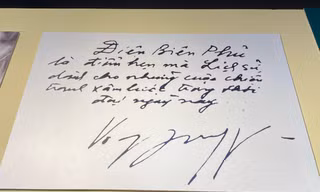 Điện Biên Phủ
là điểm hẹn mà lịch sử
dành cho những cuộc chiến
tranh xâm lược trong thời
đại ngày nay